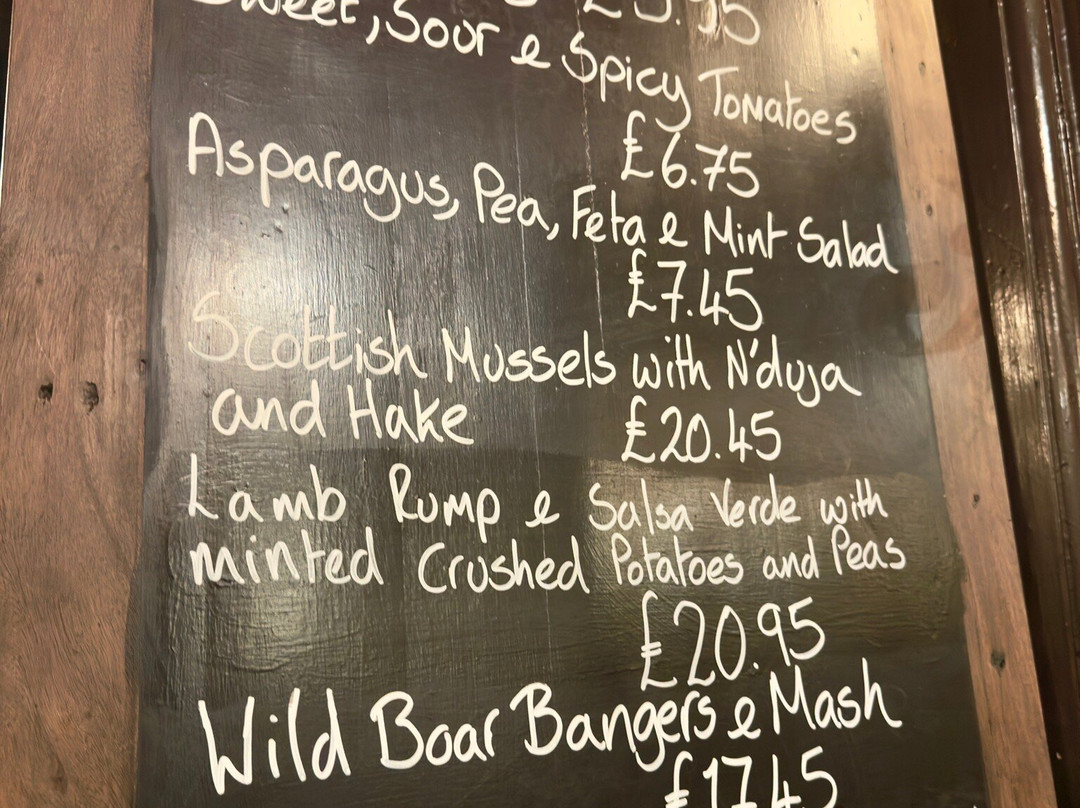 Sweet, Sour & Spicy Tomatoes
£6.75
Asparagus, Pea, Feta & Mint Salad
£7.45
Scottish Mussels with N'duja
and Hake £20.45
Lamb Rump & Salsa Verde with
minted Crushed Potatoes and Peas
£20.95
Wild Boar Bangers & Mash
£17.45